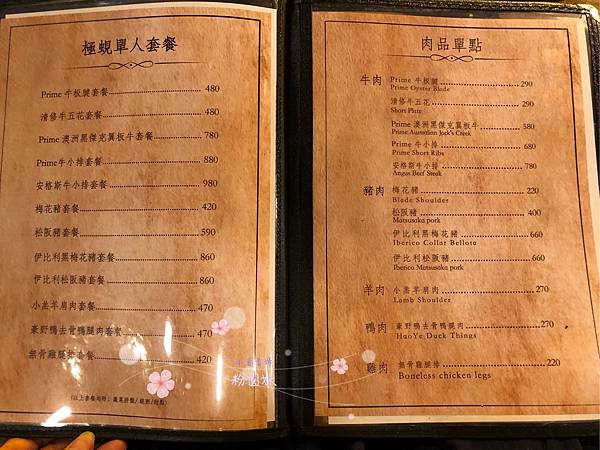 極蜆單人套餐
Prime 牛板腱套餐 480
清修牛五花套餐 480
Prime 澳洲黑傑克翼板牛套餐 780
Prime牛小排套餐 880
安格斯牛小排套餐 980
梅花豬套餐 420
松阪豬套餐 590
伊比利黑梅花豬套餐 860
伊比利松阪豬套餐 860
小羔羊肩肉套餐 470
豪野鴨去骨鴨腿肉套餐 470
無骨雞腿排套餐 420
肉品單點
牛肉 Prime 牛板腱 290
Prime Oyster Blade
清修牛五花 290
Short Plate
Prime 澳洲黑傑克翼板牛 580
Prime Australian Jack's Creek
Prime 牛小排 680
Prime Short Ribs
安格斯牛小排 780
Angus Beef Steak
豬肉 梅花豬 220
Blade Shoulder
松阪豬 400
Matsusaka pork
伊比利黑梅花豬 660
Iberico Collar Bellota
伊比利松阪豬 660
Iberico Matsusaka pork
羊肉 小羔羊肩肉 270
Lamb Shoulder
鴨肉 豪野鴨去骨鴨腿肉 270
HaoYe Duck Things
雞肉 無骨雞腿排 220
Boneless chicken legs